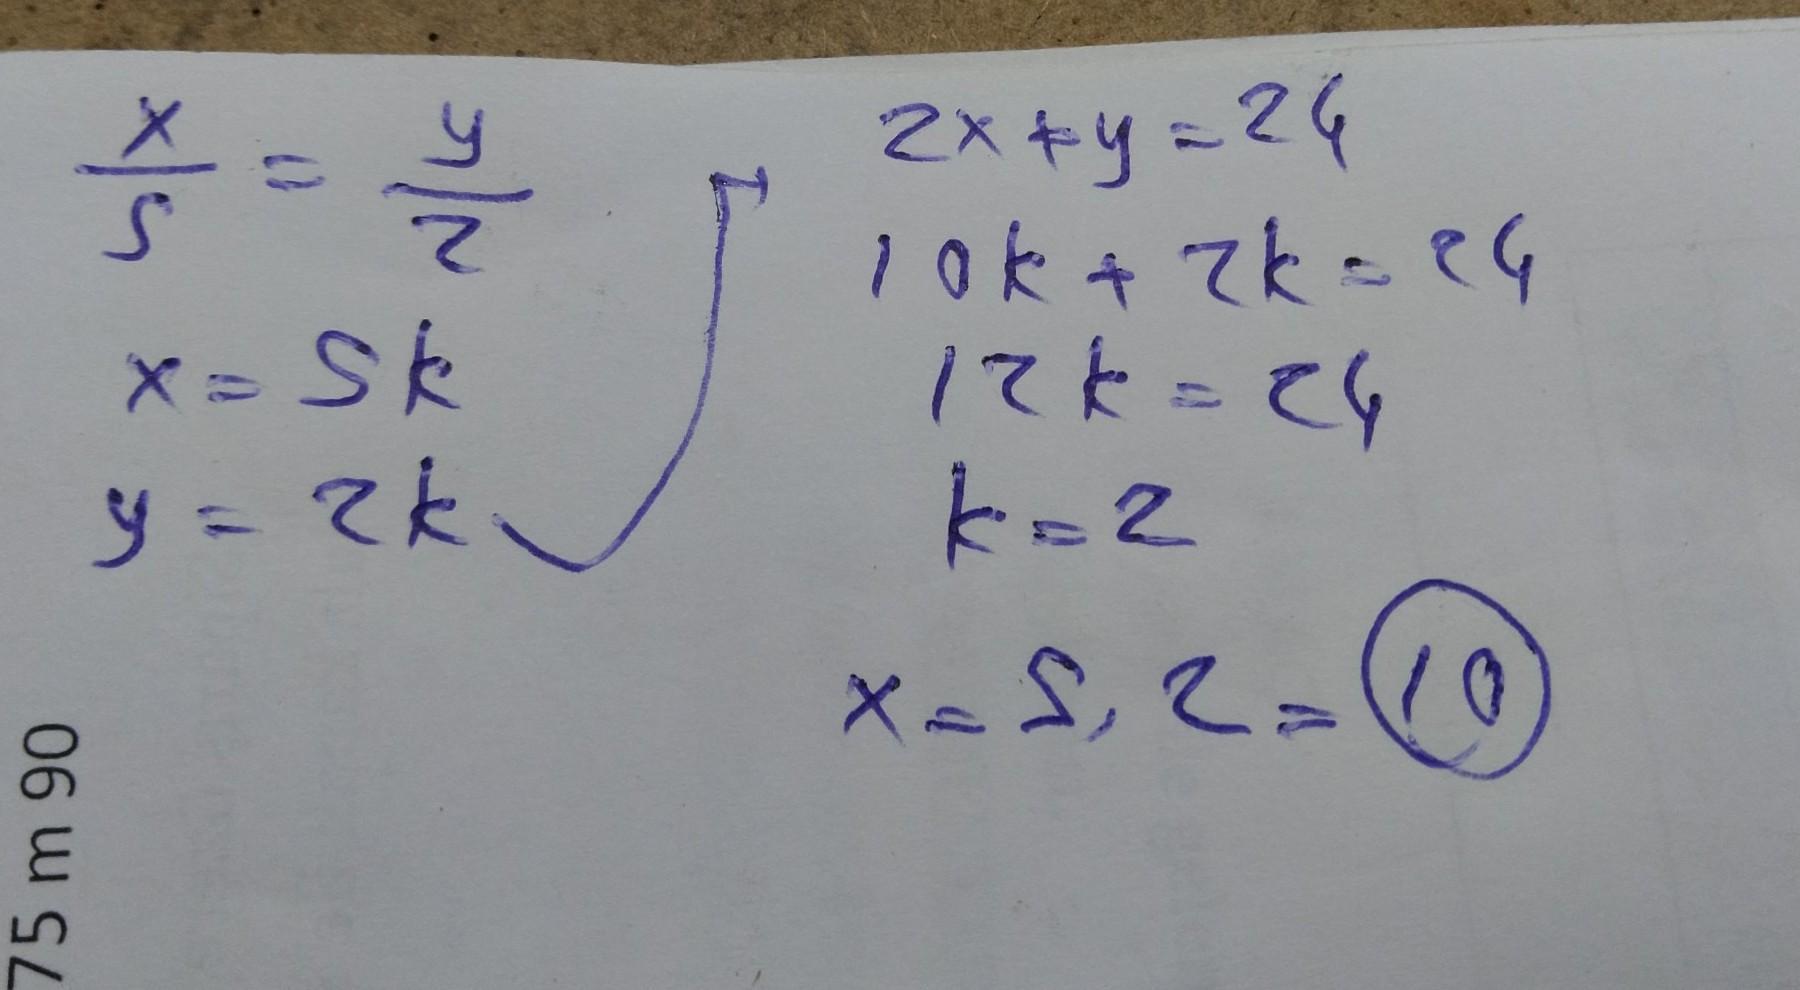 x/5 = y/2
x = 5k
y = 2k
2x + y = 24
10k + 2k = 24
12k = 24
k = 2
x = 5 . 2 = 10
75 m 90